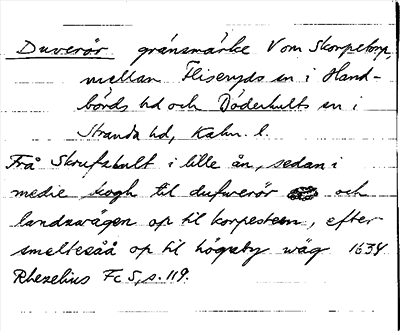 Duverör gränsmärke V om Skorpetorp,
mellan Fliseryds sn i Hand-
börds hd och Döderhults sn i
Stranda hd, Kalm. l.
Frå Skrufshult i lille ån, sedan i
medie skogh til dufwerör och
landzwägen op til korpesteen, efter
smaltesåå op til högsby wäg 1634
Rhezelius Fc 5, s. 119.